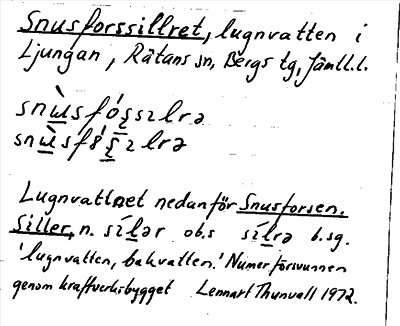 Snusforssillret, lugnvatten i
Ljungan, Rätans sn, Bergs tg, Jämtl.l.
snù̲sfó
snù̲sf
Lugnvattnet nedanför Snusforsen.
Siller, n. síl̲ər ob.s síl̲rə b.sg.
'lugnvatten, bakvatten.' Numer försvunnen
genom kraftverksbygget Lennart Thunvall 1972.